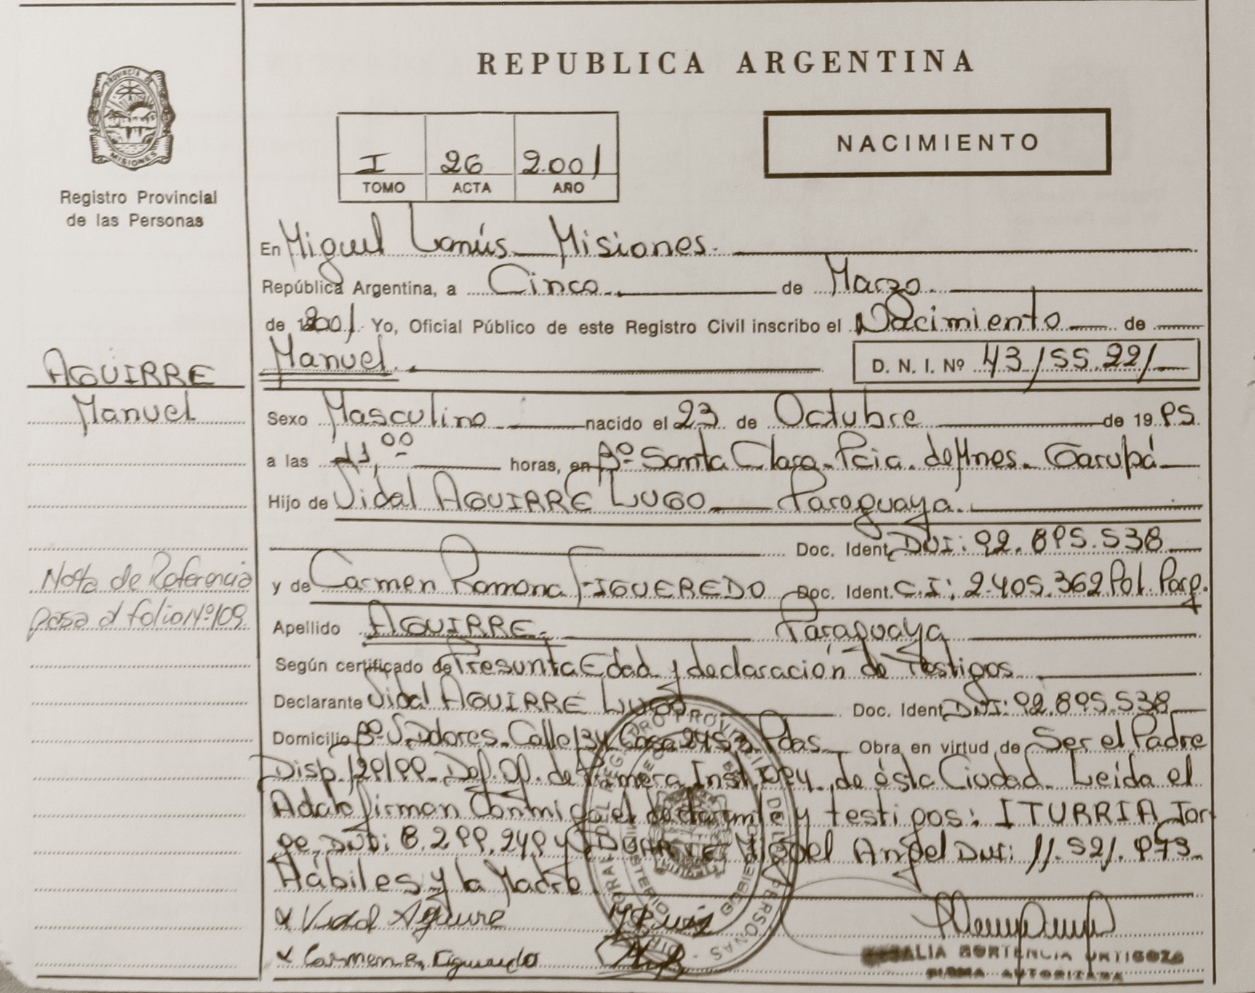 REPUBLICA ARGENTINA
PROVINCIA DE
MISIONES
Registro Provincial
de las Personas
I 26 2.001
TOMO ACTA AÑO
NACIMIENTO
En Miguel Lanús Misiones.
República Argentina, a Cinco de Marzo
de 2001 Yo, Oficial Público de este Registro Civil inscribo el Nacimiento de
Manuel. D. N. I. Nº 43155.221
AGUIRRE
Manuel
Sexo Masculino nacido el 23 de Octubre de 19 95.
a las 11,00 horas, en Bº Santa Clara. Pcia. de Mnes. Garupá
Hijo de Vidal AGUIRRE LUGO Paraguaya.
Doc. Ident. DNI: 92.895.538
y de Carmen Ramona FIGUEREDO Doc. Ident. C.I: 2.405.362 Pol. Parg.
Nota de Referencia
pasa al folio Nº 109
Apellido AGUIRRE. Paraguaya
Según certificado de Presunta Edad y declaración de Testigos
Declarante Vidal AGUIRRE LUGO Doc. Ident. DNI: 92.895.538
Domicilio Bº Calle 134 Casa Pdas Obra en virtud de Ser el Padre
Disp. Def. Of. de Primera Inst. de ésta Ciudad. Leída el
Acta firman Conmigo el declarante y testigos: ITURRIA Jor
ge DNI: 8.299.249 y DUARTE Miguel Angel DNI: 11.521.973
Hábiles y la Madre
x Vidal Aguirre
x Carmen R. Figueredo
ORTENCIA ORTIGOZA
FIRMA AUTORIZADA